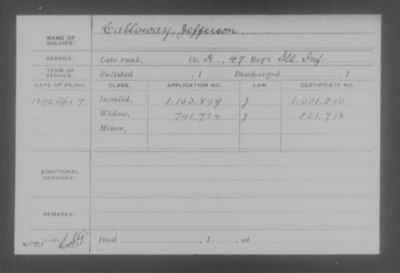 NAME OF SOLDIER: Calloway, Jefferson.
SERVICE: Late rank, Co. K, 47 Reg't Ill. Inf.
TERM OF SERVICE: Enlisted , 1 Discharged , 1
DATE OF FILING. CLASS. APPLICATION NO. LAW. CERTIFICATE NO.
1892 Apr. 7 Invalid, 1,103,899 J
Widow, J
Minor,
ADDITIONAL SERVICES:
REMARKS:
Died , 1 , at